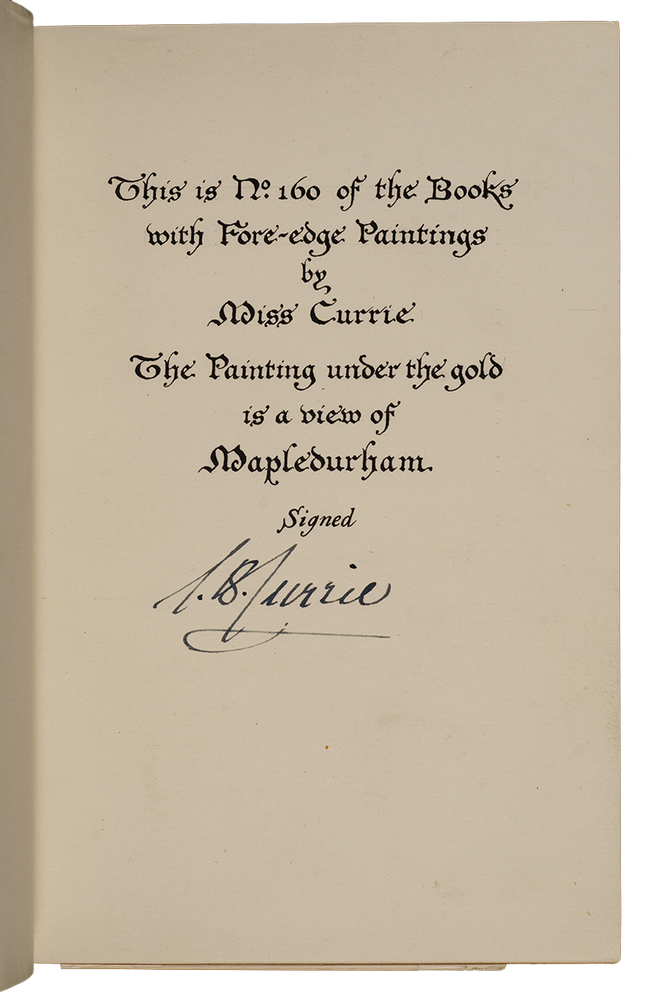 This is Nº. 160 of the Books
with Fore-edge Paintings
by
Miss Currie
The Painting under the gold
is a view of
Mapledurham.
Signed
C. B. Currie